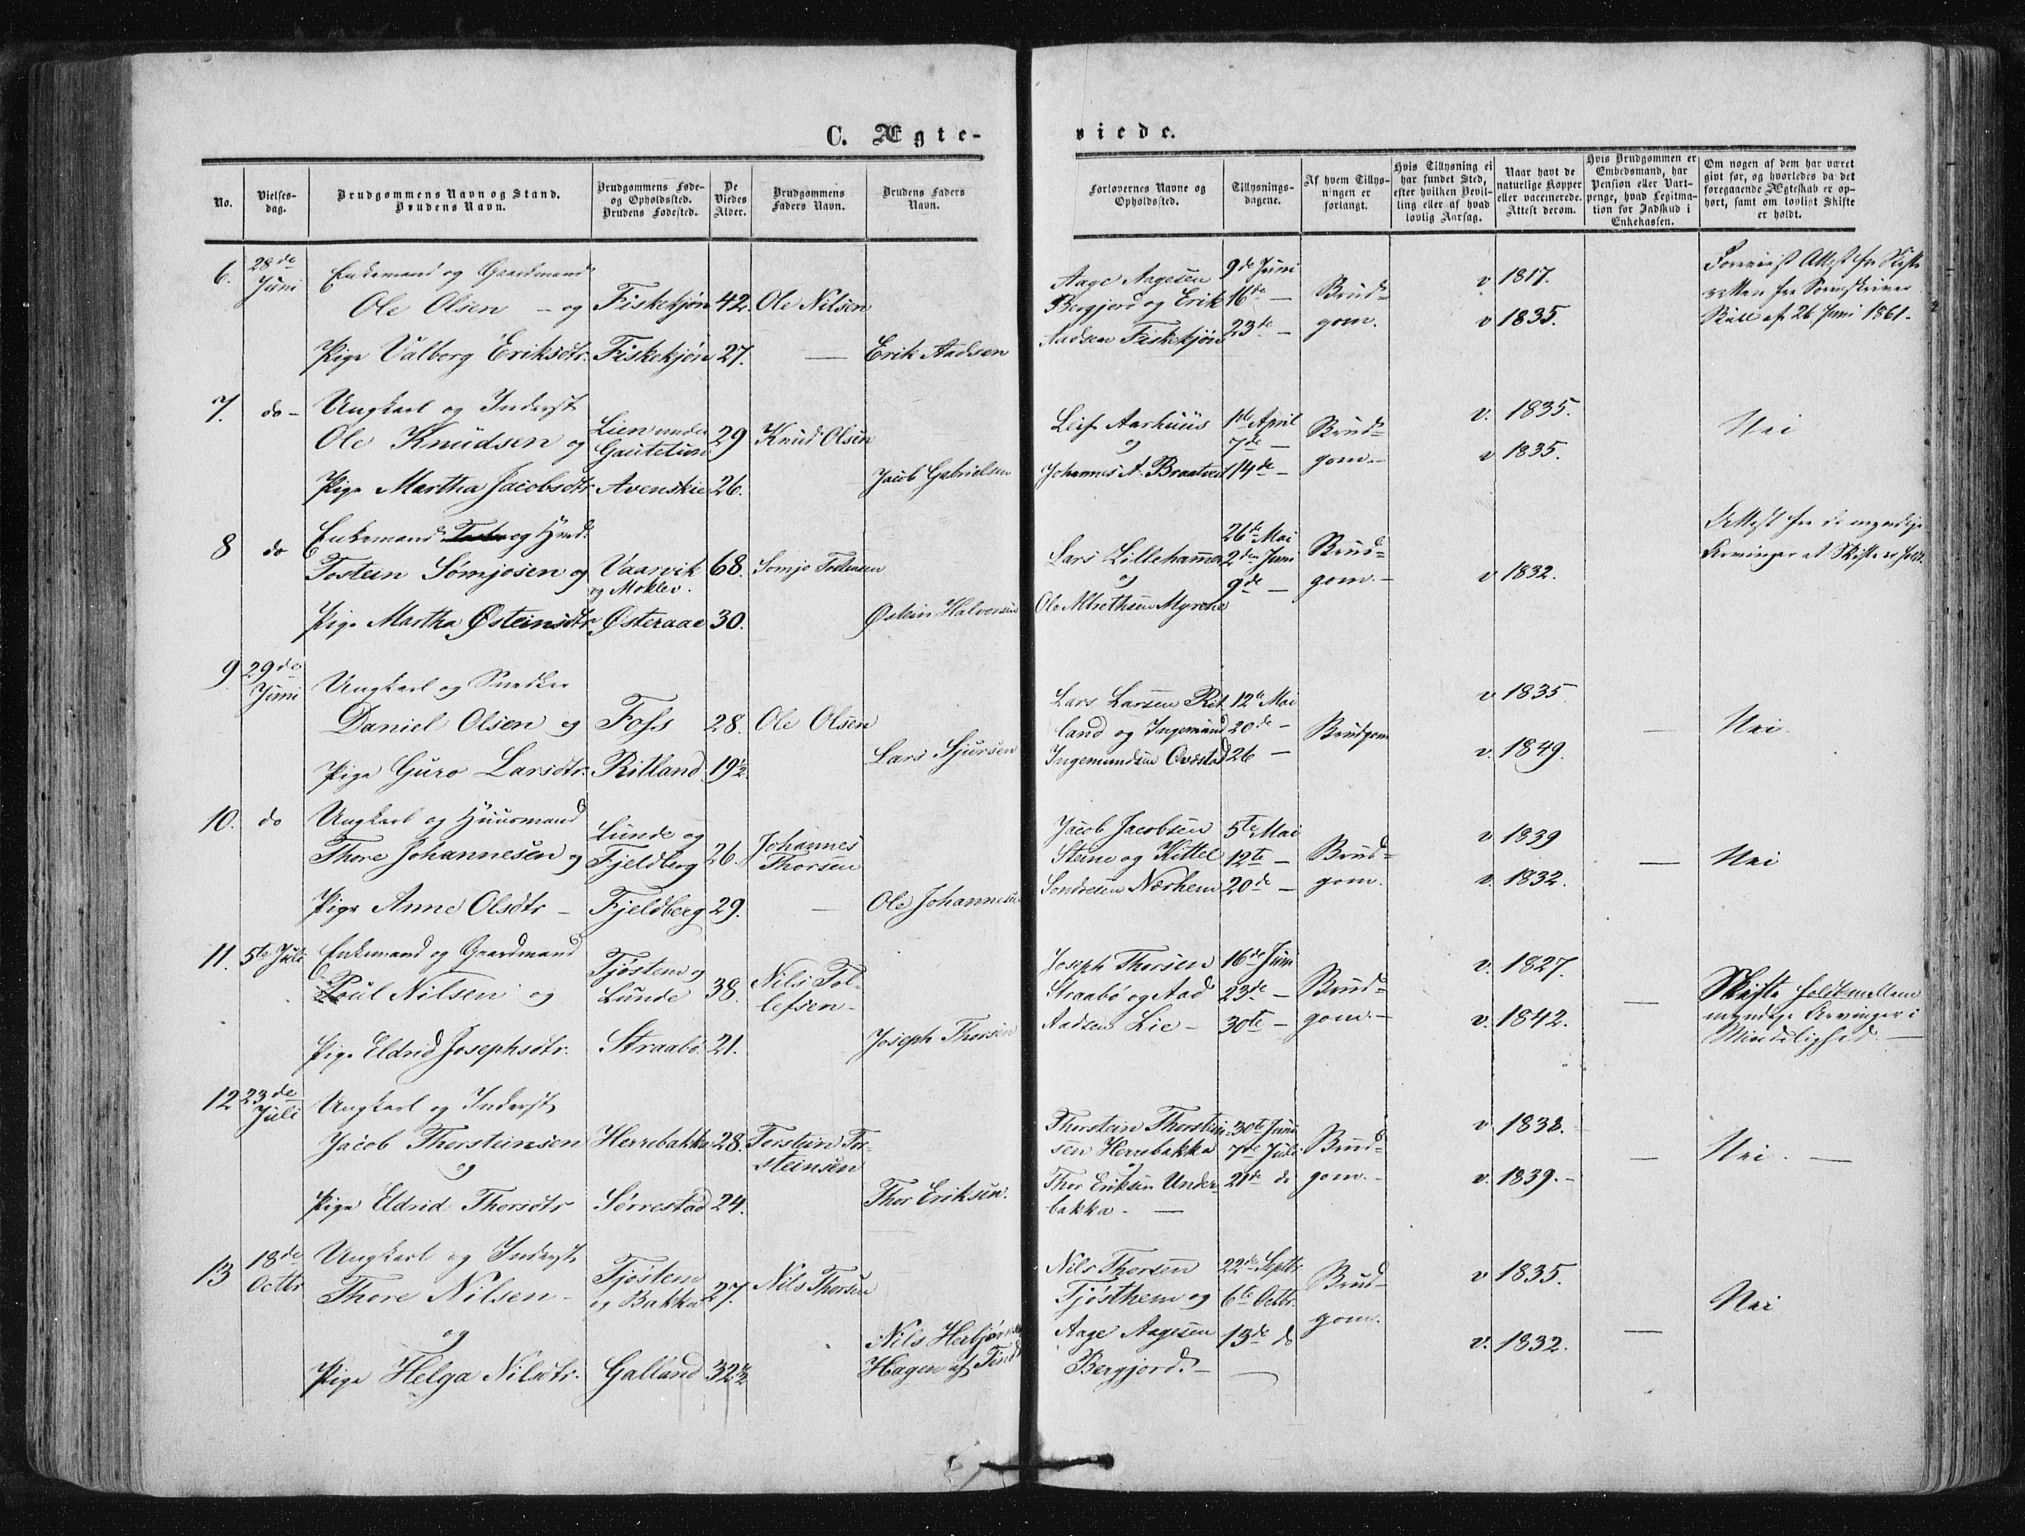 C. Ægte-
viede.
No.
Vielses-
dag.
Brudgommens Navn og Stand.
Brudens Navn.
Brudgommens Føde-
og Opholdssted.
Brudens Fødested.
De
Viedes
Alder.
Brudgommens
Faders Navn.
Brudens Faders
Navn.
Forlovernes Navne og
Opholdssted.
Tillysnings-
dagene.
Af hvem Tillys-
ningen er
forlangt.
Hvis Tillysning ei
har fundet Sted,
efter hvilken Bevil-
ling eller af hvad
lovlig Aarsag.
Naar havt de
naturlige Kopper
eller vaccinerede.
Attest derom.
Hvis Brudgommen er
Embedsmand, har
Pension eller Vart-
penge, hvad Legitma-
tion for Indskud i
Enkekassen.
Om nogen af dem har været
givt før, og hvorledes da det
foregaaende Ægteskab er op-
hørt, samt om lovligt Skifte
er holdt.
6. 28de Juni
Enkemand og Gaardmand
Ole Olsen – og Fiskekjøn 42. Ole Nilsen
Pige Valborg Eriksdtr. Fiskekjøn 27. — Erik Aadsen
Aage Aagesen 9de Juni
Bergjord og Erik 16de — Brud- v 1817.
Aadsen Fiskekjøn 23de — gom. v 1835.
Forevist Attest fra Skifte
retten fra Sorenskriver
af 26 Juni 1861.
7. do – Ungkarl og Inderst
Ole Knudsen og Lien under Gautetun 29 Knud Olsen
Pige Martha Jacobsdtr. Avenskie 26. Jacob Gabrielsen
Leif Aarhuus 1ste April Brud- v. 1835. Nei
og 7de —
Johannes A. Braatveit 14de — gom. – v 1835.
8 do Enkemand og
Tostein Sømjosen og Vaarvik og Moklev. 68. Somjo Tostensen
Pige Martha Østeinsdtr. Østeraae 30. Østein Halvorsen
26de Mai
Lars Lillehamer 2den Juni Brud-
og 9de — gom. – v 1832.
Ole
Attest fra de myndige
Arvinger at Skifte er holdt.
9 29de Juni
Ungkarl og Snedker
Daniel Olsen og Foss 28. Ole Olsen
Pige Guro Larsdtr. Ritland 19½ Lars Sjursen
Lars Larsen Rit 12te Mai v. 1835
land og Ingemund 20de — Brudgom — Nei
Ingemundsen Ovestad 26 — v. 1849.
10. do Ungkarl og Huusmand
Thore Johannesen og Lunde og Fjeldberg 26. Johannes Thorsen
Pige Anne Olsdtr – Fjeldberg 29. — Ole Johannesen
Jacob Jacobsen 5te Mai v 1839
Steine og Kittel 12te — Brud- — Nei
Sondresen Nærhem 20de — gom. v. 1832.
11. 5te Juli Enkemand og Gaardmand
Poul Nilsen og Tjøstem og Lunde 38. Nils Tol-
lefsen –
Pige Eldrid Josephsdtr. Straabø 21. Joseph Thorsen
Joseph Thorsen 16de Juni v. 1827.
Straabø og Aad 23de — Brud- —
Aadsen Lie – 30te — gom. – v. 1842.
Skifte holdt mellem
myndige Arvinger i
Mindelighed. —
12 23de Juli
Ungkarl og Inderst
Jacob Thorsteinsen Herrebakka 28. Torstein Tor-
steinsen
og
Pige Eldrid Thorsdtr Sørrestad 24. Thor Eriksen.
Thorstein Thorstein- 30te Juni v. 1838.
sen Herrebakka 7de Juli Brud- — Nei. —
Thor Eriksen Under- 21de do gom. – v. 1839. –
bakka. —
13 18de Octbr
Ungkarl og Inderst
Thore Nilsen – Tjøstem og Bakka 27. Nils Thorsen
og
Pige Helga Nilsdtr. Galland 32½ Nils Herbjørnsen
Hagen af Tind
Nils Thorsen 22de Septbr v 1835.
Tjøsthem og 6te Octbr. Brud- Nei
Aage Aagesen 13de do gom. v. 1832. —
Bergjord. –